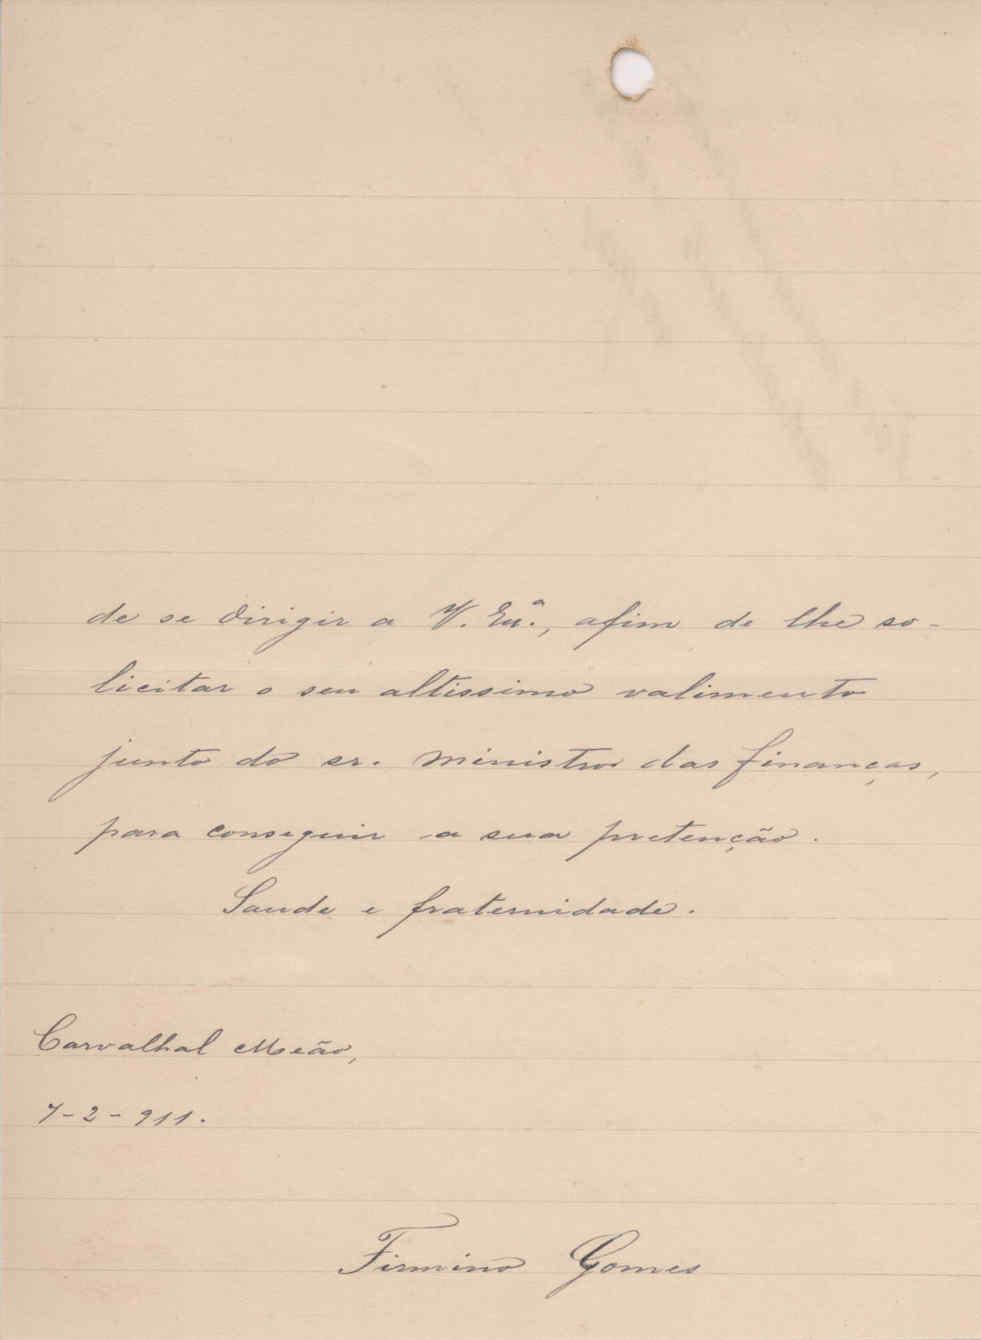 de se dirigir a V. Exª., afim de lhe so-
licitar o seu altissimo valimento
junto do sr. ministro das finanças,
para conseguir a sua pretenção.
Saude e fraternidade.
Carvalhal Meão,
7-2-911.
Firmino Gomes